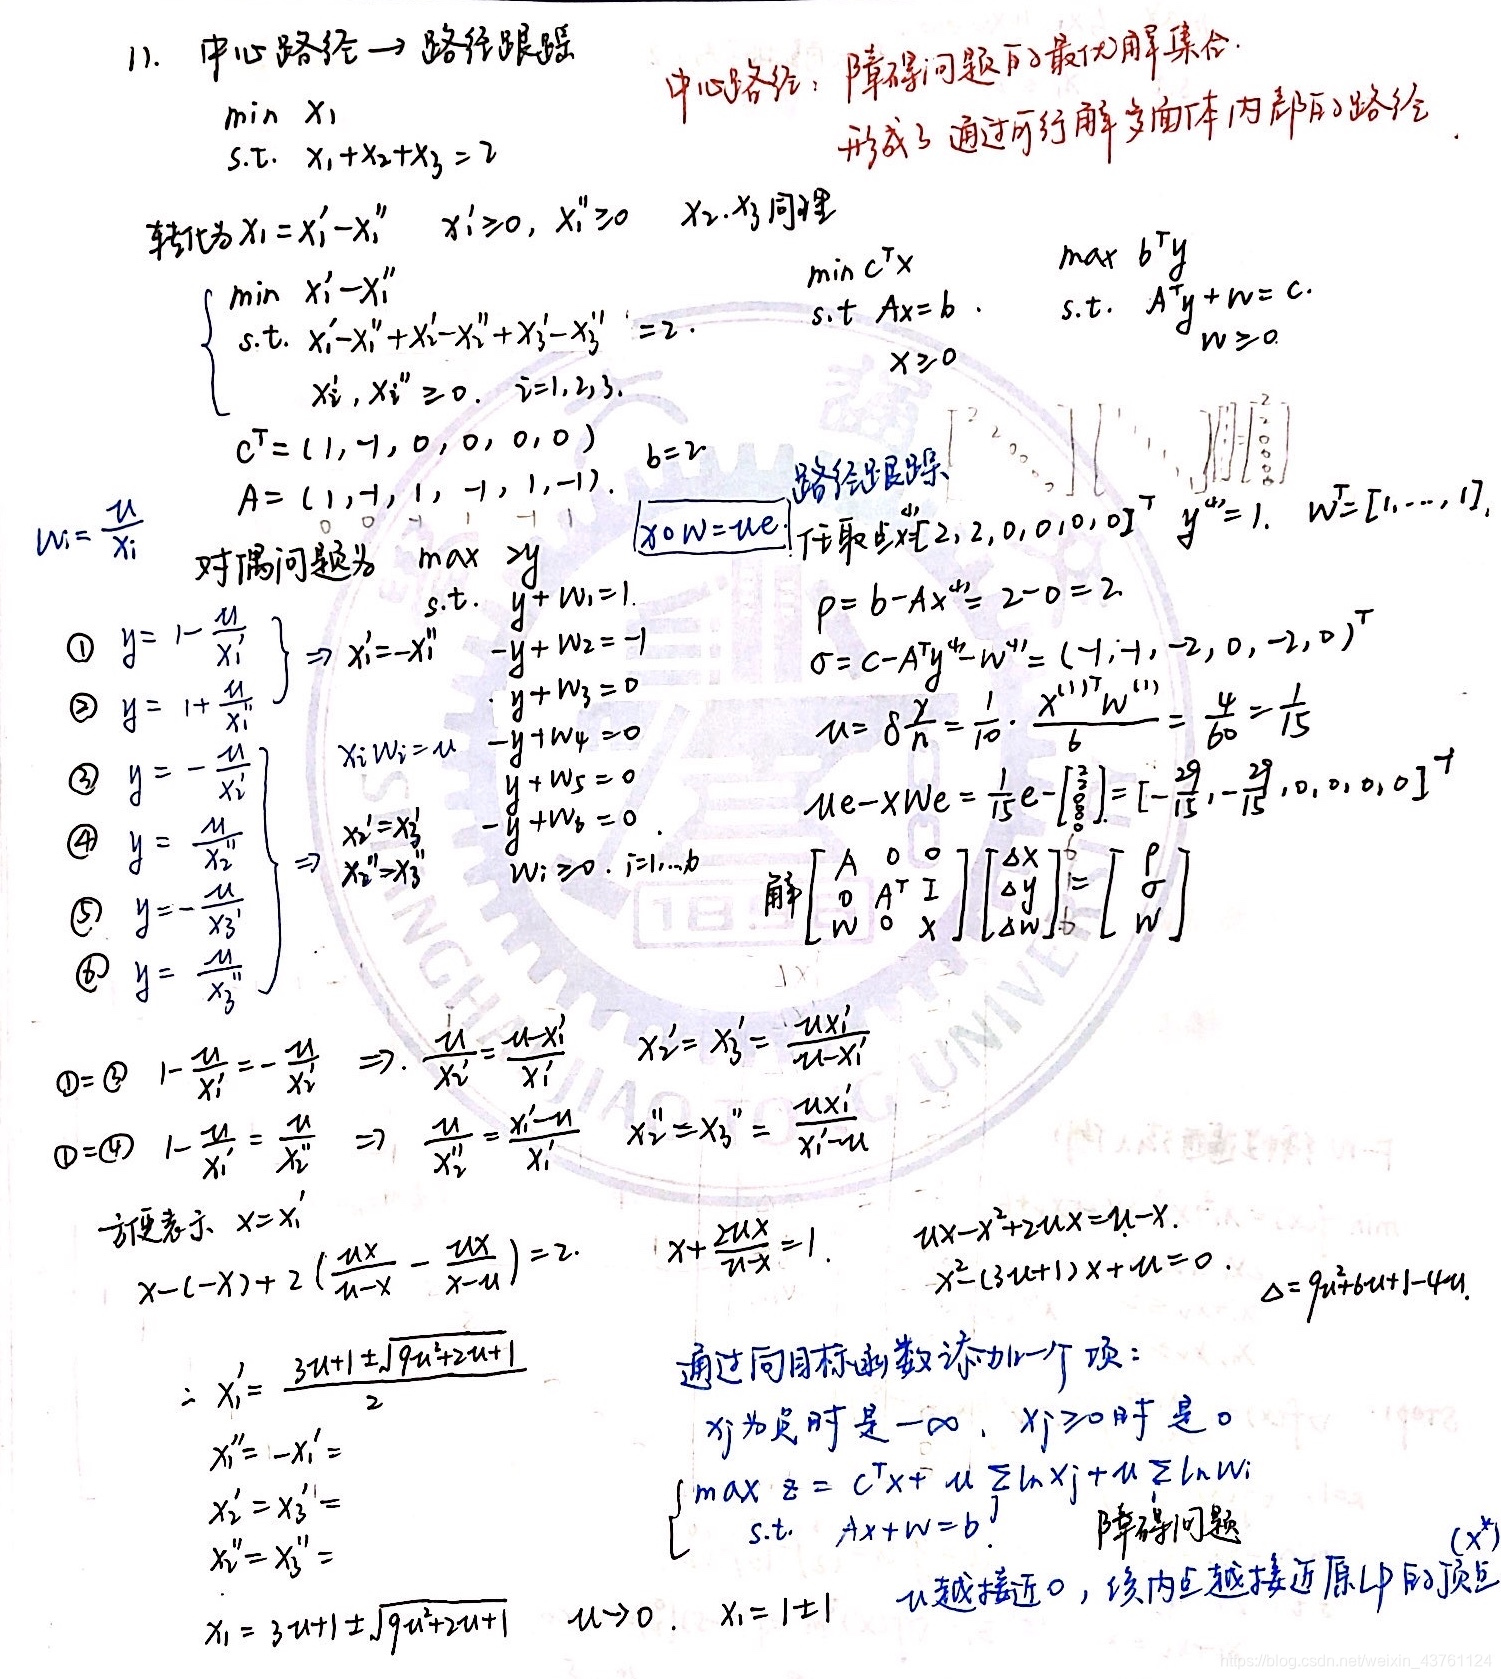 11. 中心路径→路径跟踪
中心路径：障碍问题的最优解集合.
形成了通过可行解多面体内部的路径.
min x₁
s.t. x₁+x₂+x₃=2
转化为 x₁=x₁'-x₁'' x₁'≥0, x₁''≥0 x₂.x₃同理
min x₁'-x₁''
s.t. x₁'-x₁''+x₂'-x₂''+x₃'-x₃''=2.
xᵢ', xᵢ''≥0. i=1,2,3.
min cᵀx
s.t Ax=b.
x≥0
max bᵀy
s.t. Aᵀy+w=c.
w≥0.
cᵀ=(1,-1,0,0,0,0)
b=2
A=(1,-1,1,-1,1,-1).
0 0 -1 1 -1 1
wᵢ=u/xᵢ
x∘w=ue.
对偶问题为 max 2y
s.t. y+w₁=1.
-y+w₂=-1
y+w₃=0
-y+w₄=0
y+w₅=0
-y+w₆=0.
wᵢ≥0. i=1,...6
① y=1-u/x₁'
② y=1+u/x₁''
⇒ x₁'=-x₁''
③ y=-u/x₂'
④ y=u/x₂''
⑤ y=-u/x₃'
⑥ y=u/x₃''
xᵢwᵢ=u
⇒ x₂'=x₃'
x₂''=x₃''
路径跟踪
任取点x⁽¹⁾=[2,2,0,0,0,0]ᵀ y⁽¹⁾=1. wᵀ=[1,...,1],
ρ=b-Ax⁽¹⁾=2-0=2
σ=c-Aᵀy⁽¹⁾-w⁽¹⁾=(-1,-1,-2,0,-2,0)ᵀ
u=δ γ/n=1/10·x⁽¹⁾ᵀw⁽¹⁾/6=4/60=1/15
ue-XWe=1/15 e-[2 2 0 0 0 0]=[-29/15,-29/15,0,0,0,0]ᵀ
解[A 0 0; 0 Aᵀ I; W 0 X][Δx; Δy; Δw]=[ρ; σ; w]
①=③ 1-u/x₁'=-u/x₂' ⇒. u/x₂'=(u-x₁')/x₁' x₂'=x₃'=ux₁'/(u-x₁')
①=④ 1-u/x₁'=u/x₂'' ⇒ u/x₂''=(x₁'-u)/x₁' x₂''=x₃''=ux₁'/(x₁'-u)
方便表示 x=x₁'
x-(-x)+2(ux/(u-x)-ux/(x-u))=2. x+2ux/(u-x)=1.
ux-x²+2ux=u-x.
x²-(3u+1)x+u=0. Δ=9u²+6u+1-4u.
∴ x₁'=(3u+1±√(9u²+2u+1))/2
x₁''=-x₁'=
x₂'=x₃'=
x₂''=x₃''=
x₁=3u+1±√(9u²+2u+1) u→0. x₁=1±1
通过向目标函数添加一个项：
xⱼ为负时是-∞, xⱼ≥0时是0
max z=cᵀx+u∑lnxⱼ+u∑lnwᵢ
s.t. Ax+w=b. 障碍问题
(x*)
u越接近0, 该内点越接近原LP的顶点
SHANGHAI JIAO TONG UNIVERSITY
1896
https://blog.csdn.net/weixin_43761124